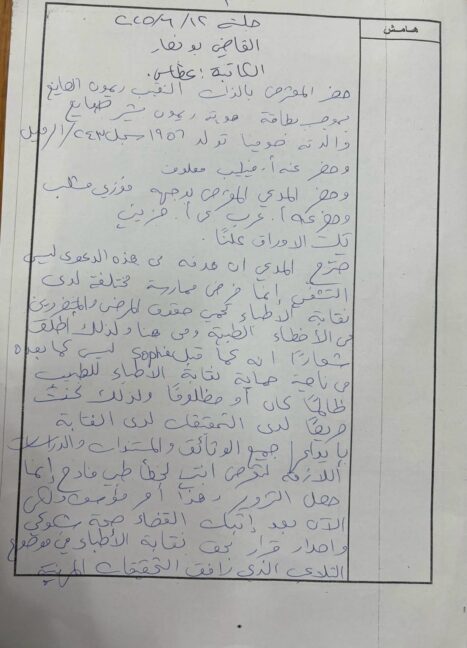 هامش
جلسة ١٢/٦/٢٠٢٥
القاضي بو نصار
الكاتبة: عطاس
حضر المعترض بالذات النقيب ريمون الصايغ
بموجب بطاقة هوية ريمون بشير صايغ
والدته تولد ١٩٥٦ سجل ٢٤٣/الرميل
وحضر عنه أ. فيليب معلوف
وحضر المدعي المعترض بوجهه فوزي مشلب
وحضر عنه أ. غريب أ. حزين
تليت الاوراق علنًا.
صرّح المدعي ان هدفه من هذه الدعوى ليس
التشفي إنما فرض ممارسة مختلفة لدى
نقابة الأطباء تحمي حقوق المرضى والمتضررين
من الأخطاء الطبية ومن هنا ولذلك أطلق
شعارًا انه كما قبل Sophie ليس كما بعده
من ناحية حماية نقابة الأطباء للطبيب
ظالمًا كان أو مظلومًا ولذلك كنت
حريصًا لدى التحقيقات لدى النقابة
بإيداعها جميع الوثائق والمستندات والدراسات
اللازمة لتعرض ابنتي لخطأ طبي فادح إنما
حصل التزوير وهذا أمر مؤسف
الآن بعد إثبات القضاء صحة شكوكي
واصدار قرار بحق نقابة الأطباء في موضوع
التلاعب الذي رافق التحقيقات المهنية